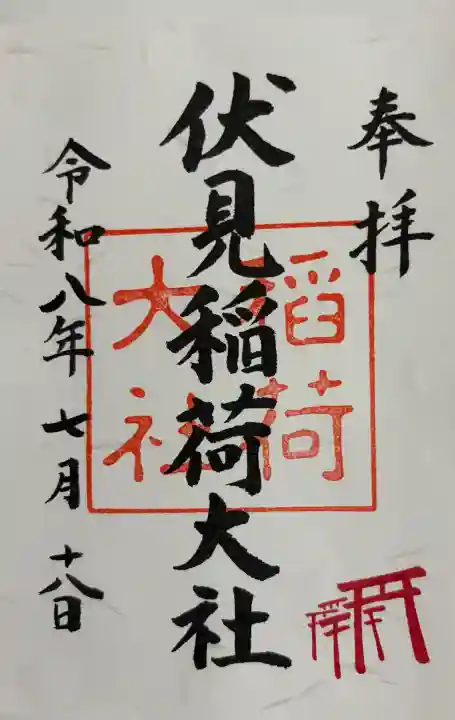 奉拝
伏見稲荷大社
稲荷
大社
令和八年七月十八日